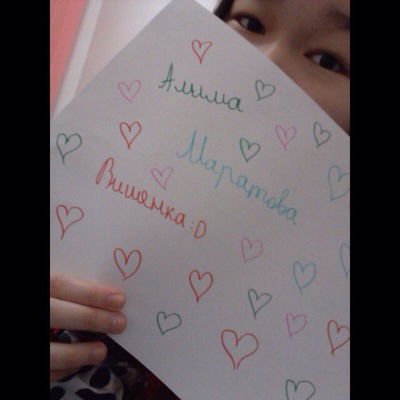 Алима
Маратова
Вишенка:D